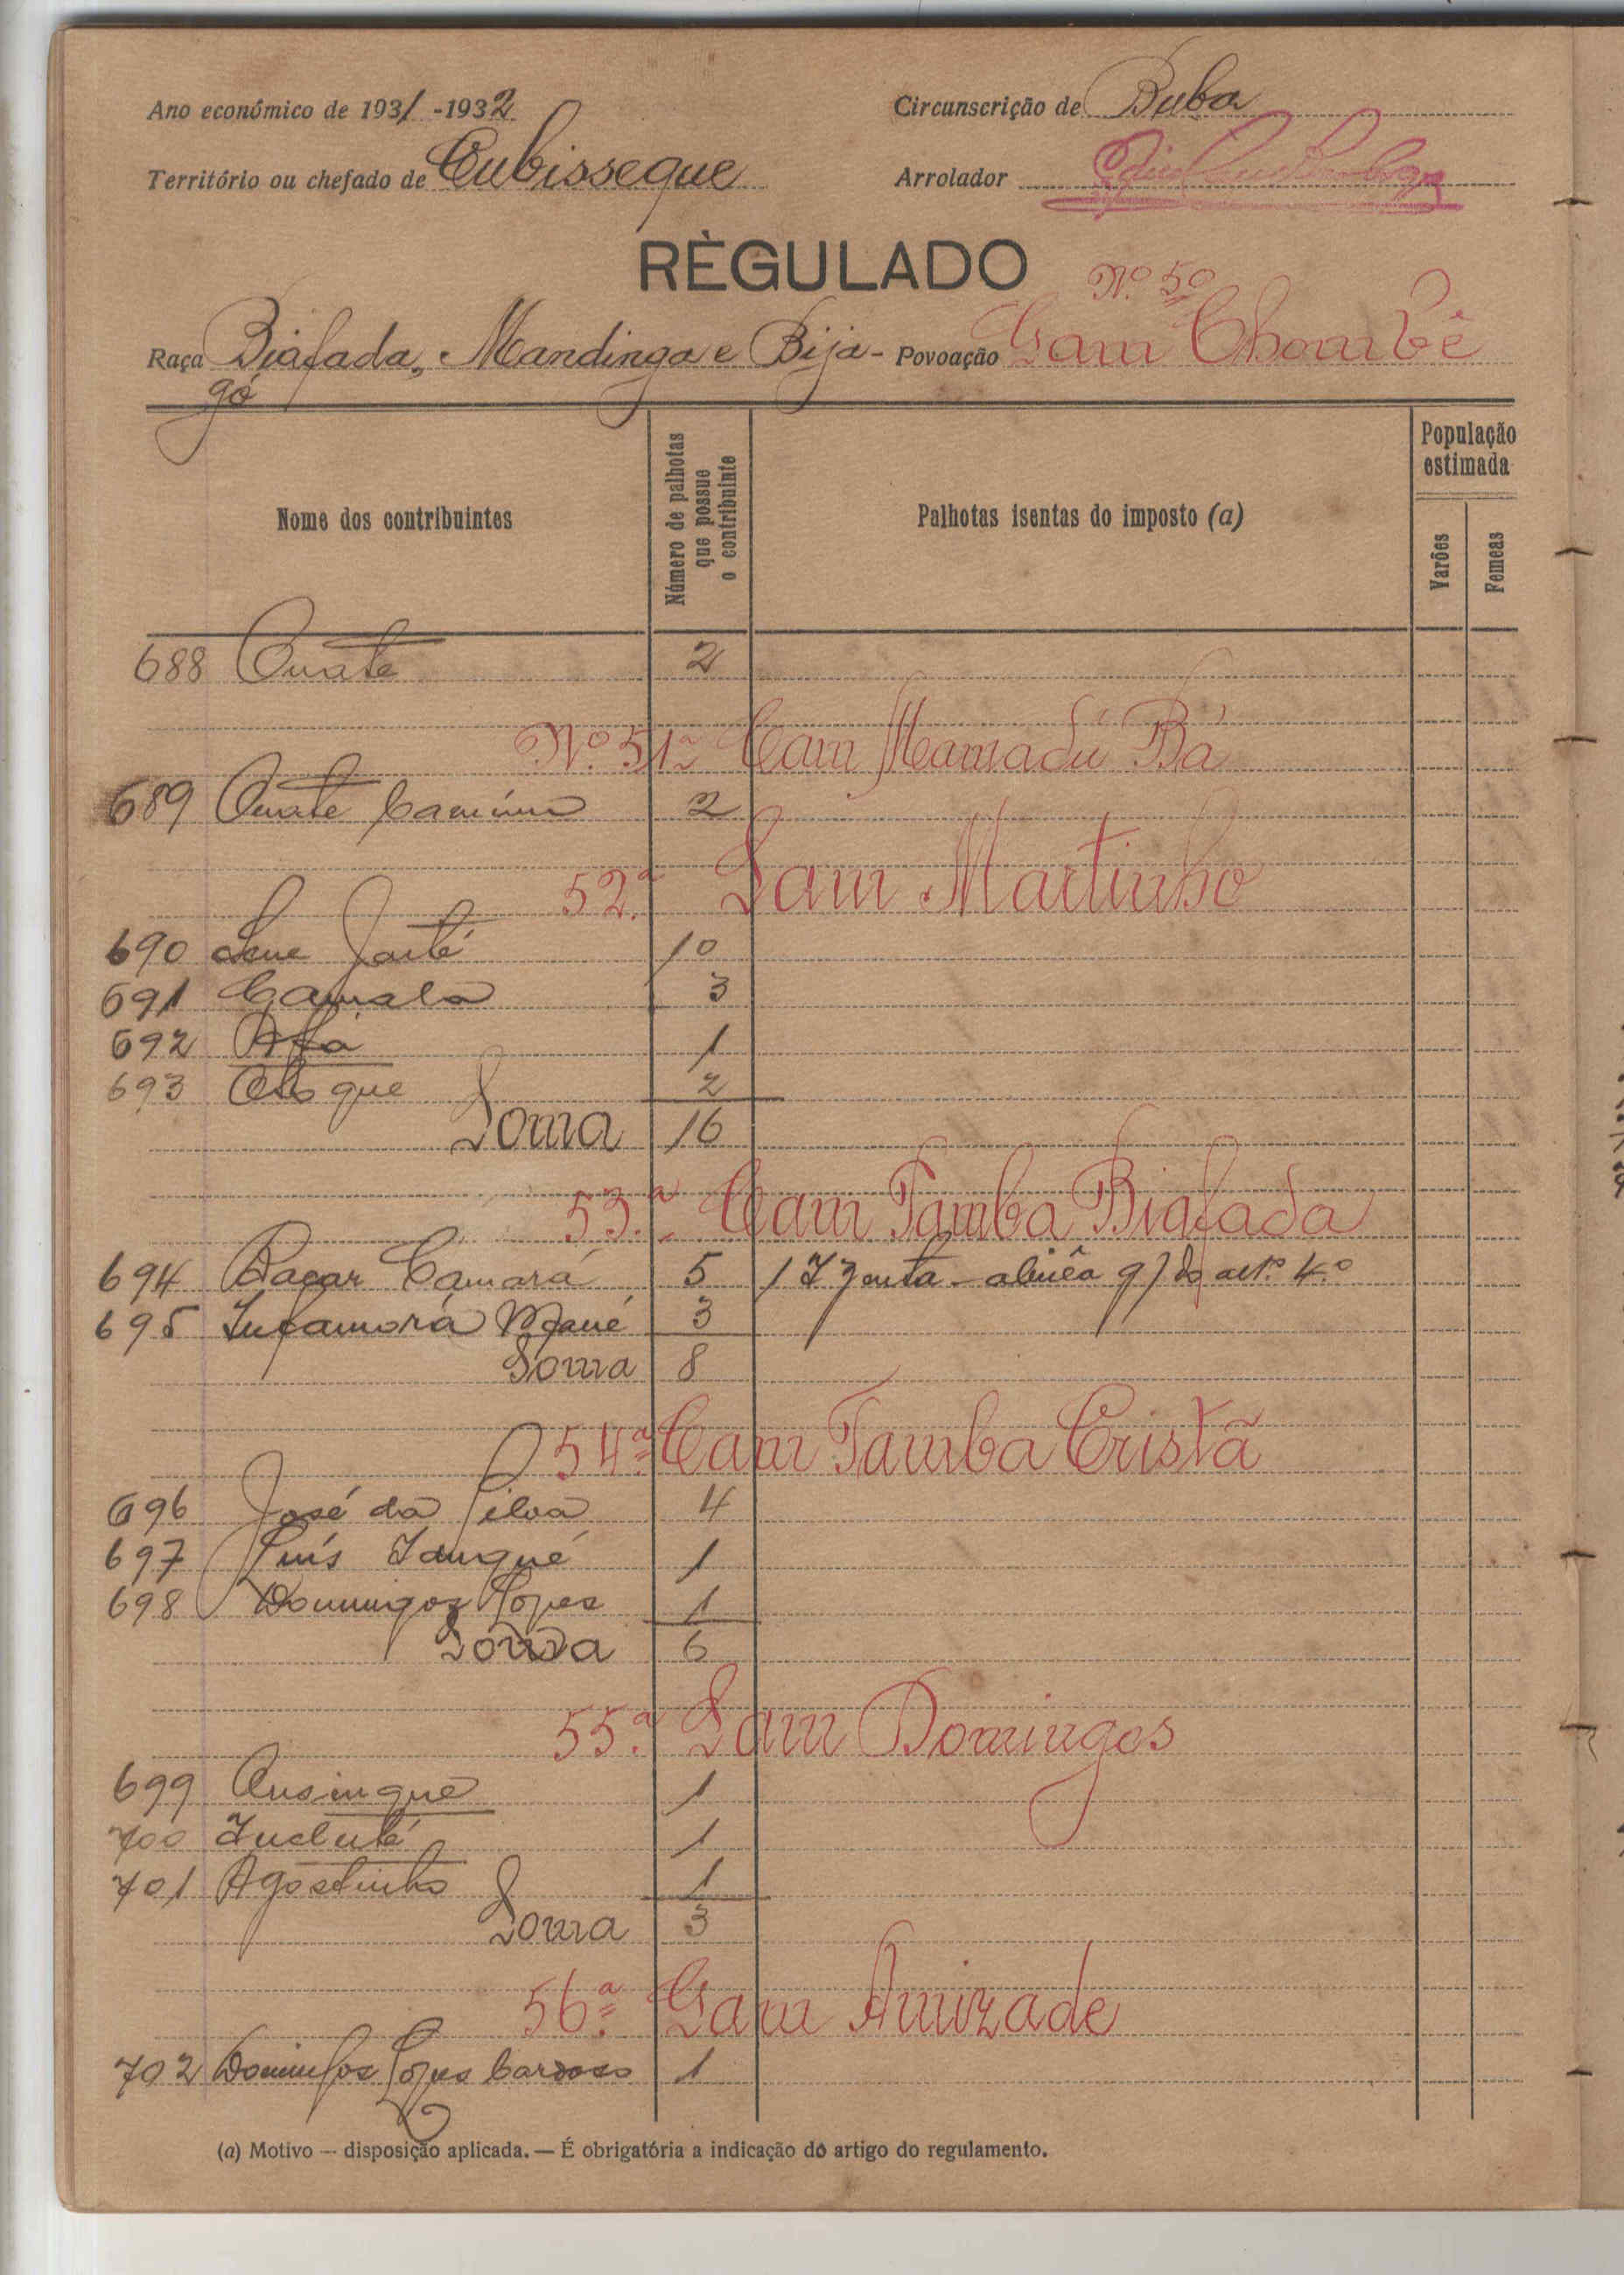 Ano económico de 1931-1932 Circunscrição de Buba
Território ou chefado de Cubisseque Arrolador
RÈGULADO
Nº 50
Raça Biafada, Mandinga e Bija- Povoação Gam Chombê
gó
Nome dos contribuintes
Número de palhotas que possue o contribuinte
Palhotas isentas do imposto (a)
População estimada
Varões
Femeas
688 2
Nº 51ª Cam Mamadú Bá
689 2
52.ª Sam Martinho
690 10
691 Camala 3
692 Afa 1
693 2
Soma 16
53.ª Cam Tamba Biafada
694 Bacar Camará 5 1 Izenta - alinêa g) do artº 4º
695 Infamorá Mané 3
Soma 8
54ª Cam Tamba Cristã
696 José da Silva 4
697 Luís 1
698 Domingos Lopes 1
Soma 6
55.ª Sam Domingos
699 1
700 1
701 Agostinho 1
Soma 3
56ª Gam Amizade
702 Domingos Lopes Cardoso 1
(a) Motivo — disposição aplicada. — É obrigatória a indicação do artigo do regulamento.